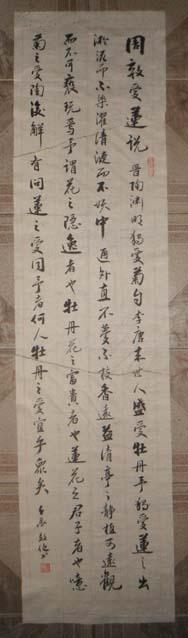 周敦愛蓮説 晋陶渊明獨愛菊自李唐来世人盛愛牡丹予獨愛蓮之出
淤泥而不染濯清漣而不妖中通外直不蔓不枝香遠益清亭亭静植可遠觀
而不可褻玩焉予謂花之隐逸者也牡丹花之富貴者也蓮花之君子者也噫
菊之愛陶後鮮有聞蓮之愛同予者何人牡丹之愛宜乎衆矣